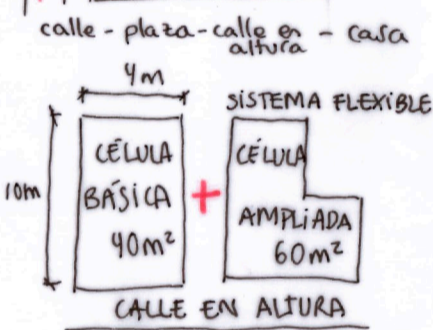 calle - plaza - calle en altura - casa
4m
SISTEMA FLEXIBLE
10m
CÉLULA
BÁSICA
40m²
+
CÉLULA
AMPLIADA
60m²
CALLE EN ALTURA